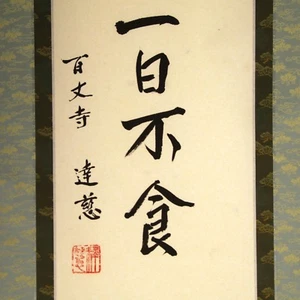 一日不食
百丈寺 達慈